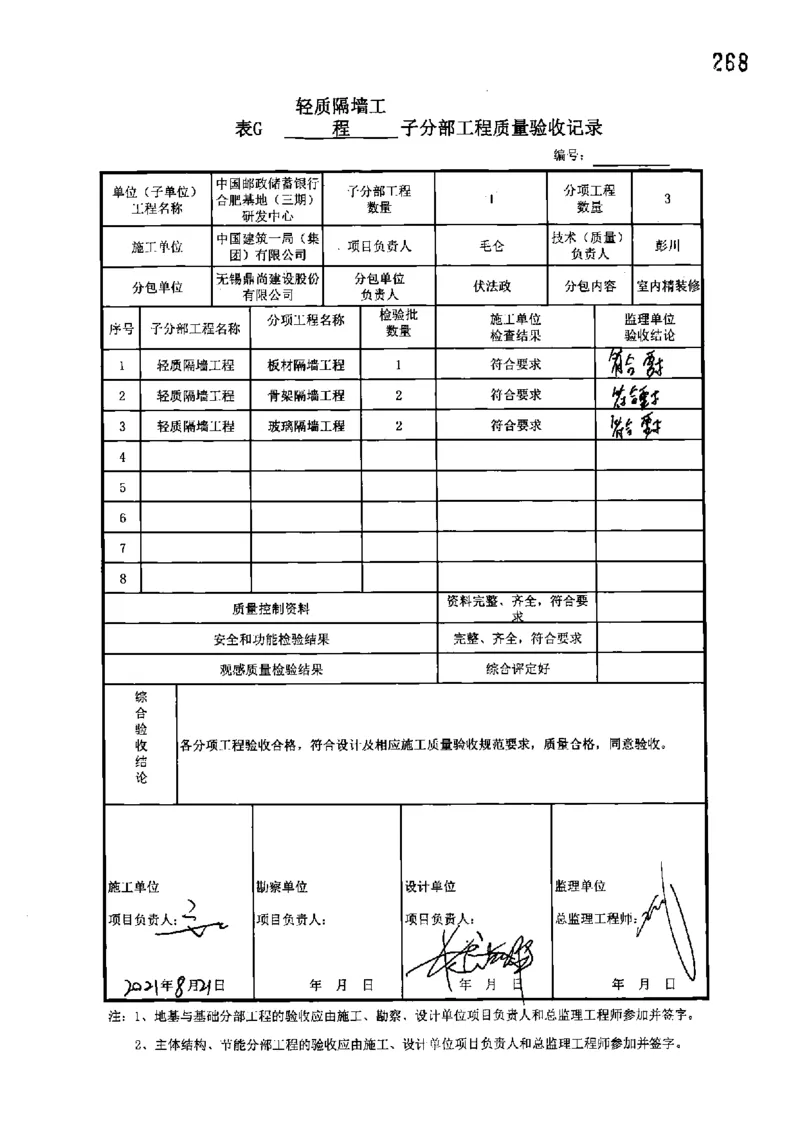 268
轻质隔墙工
表G 程 子分部工程质量验收记录
编号：
单位（子单位）工程名称 中国邮政储蓄银行合肥基地（三期）研发中心 子分部工程数量 1 分项工程数量 3
施工单位 中国建筑一局（集团）有限公司 项目负责人 毛仑 技术（质量）负责人 彭川
分包单位 无锡鼎尚建设股份有限公司 分包单位负责人 伏法政 分包内容 室内精装修
序号 子分部工程名称 分项工程名称 检验批数量 施工单位检查结果 监理单位验收结论
1 轻质隔墙工程 板材隔墙工程 1 符合要求 符合要求
2 轻质隔墙工程 骨架隔墙工程 2 符合要求 符合要求
3 轻质隔墙工程 玻璃隔墙工程 2 符合要求 符合要求
4
5
6
7
8
质量控制资料 资料完整、齐全，符合要求
安全和功能检验结果 完整、齐全，符合要求
观感质量检验结果 综合评定好
综合验收结论 各分项工程验收合格，符合设计及相应施工质量验收规范要求，质量合格，同意验收。
施工单位 勘察单位 设计单位 监理单位
项目负责人： 项目负责人： 项目负责人： 总监理工程师：
2021年8月21日 年 月 日 年 月 日 年 月 日
注：1、地基与基础分部工程的验收应由施工、勘察、设计单位项目负责人和总监理工程师参加并签字。
2、主体结构、节能分部工程的验收应由施工、设计单位项目负责人和总监理工程师参加并签字。